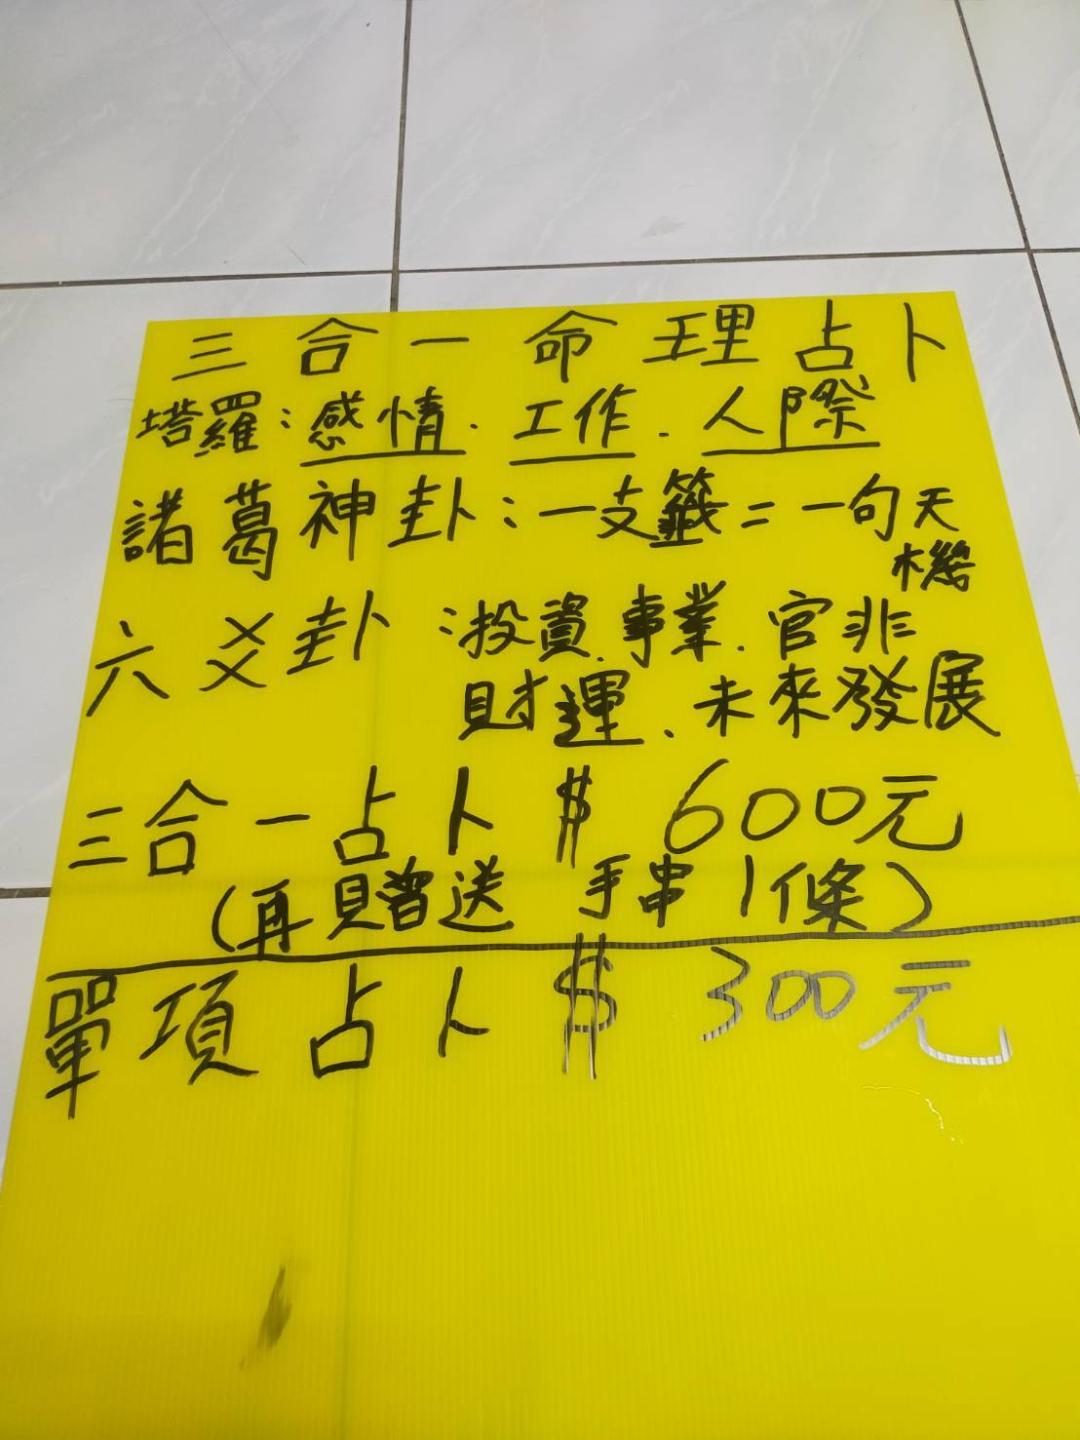 三合一命理占卜
塔羅:感情.工作.人際
諸葛神卦:一支籤=一句天
機
六爻卦:投資.事業.官非
財運.未來發展
三合一占卜$600元
(再贈送 手串1條)
單項占卜$300元